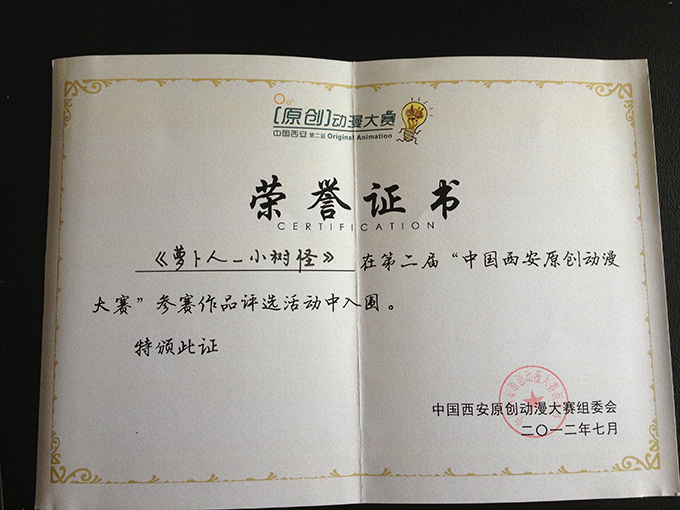 [原创]动漫大赛
中国西安 第二届 Original Animation
荣誉证书
CERTIFICATION
《萝卜人—小树怪》在第二届“中国西安原创动漫
大赛”参赛作品评选活动中入围。
特颁此证
中国西安原创动漫大赛组委会
二〇一二年七月